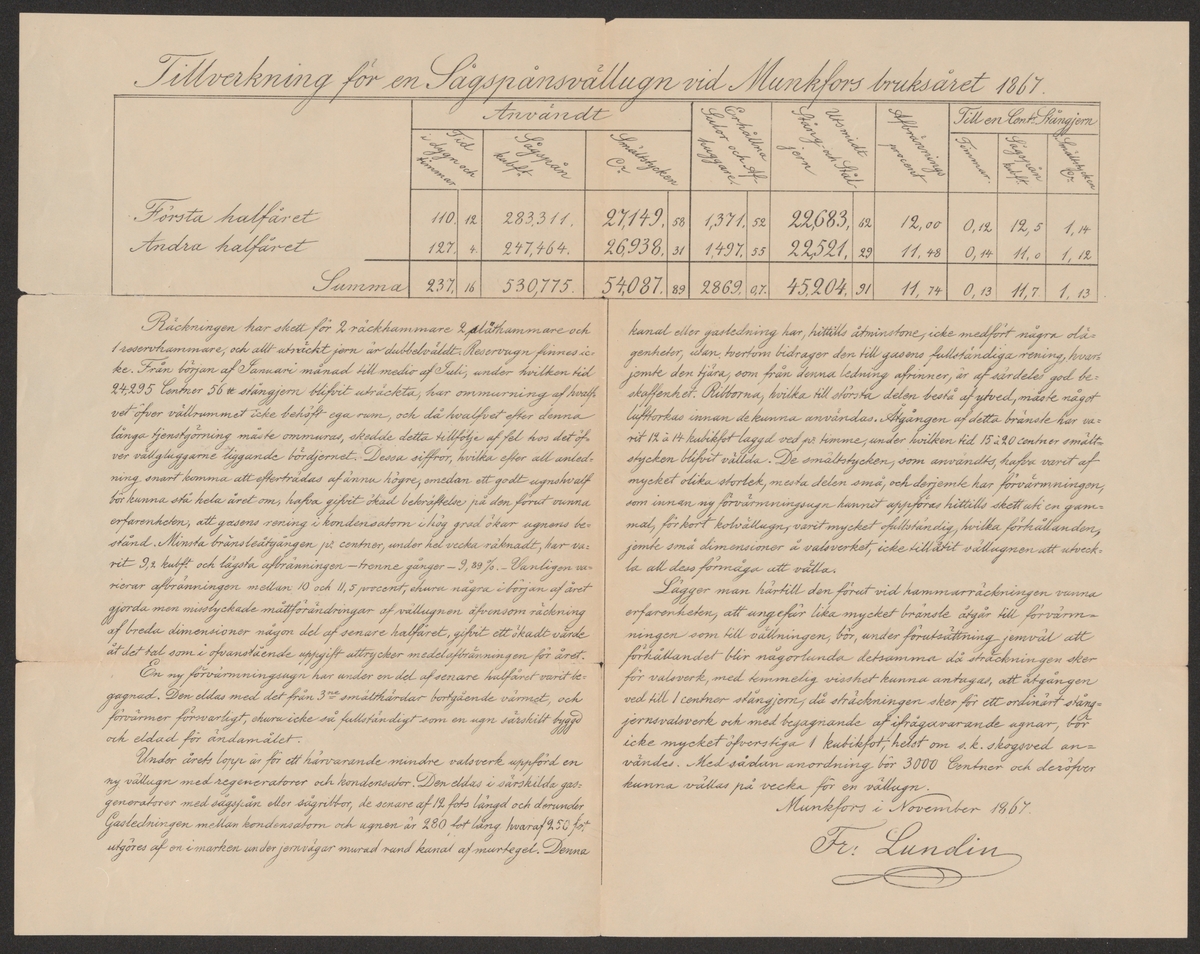 Tillverkning för en Sågspånsvällugn vid Munkfors bruksåret 1867.
Användt
Till en Cent. Stångjern
Tid i dygn och timmar.
Sågspån kubft.
Smältstycken Cr.
Erhållna Sulor och Afhuggare.
Utsmidt Stång- och Stål-jern
Afbrännings procent
Timmar.
Sågspån kubft.
Smältstycken Cr.
Första halfåret 110. 12 283,311. 27,149. 58 1,371. 52 22,683. 62 12,00 0,12 12,5 1,14
Andra halfåret 127. 4. 247,464. 26,938. 31 1,497. 55 22,521. 29 11,48 0,14 11,0 1,12
Summa 237. 16 530,775. 54,087. 89 2869. 0,7. 45,204. 91 11,74 0,13 11,7. 1,13
Räckningen har skett för 2 räckhammare 2 släthammare och
1 reservhammare, och allt uträckt jern är dubbelvälldt. Reservugn finnes ic-
ke. Från början af Januari månad till medio af Juli, under hvilken tid
24,295 Centner 56 ℔ stångjern blifvit uträckta, har ommurning af hvalf-
vet öfver vällrummet icke behöft ega rum, och då hvalfvet efter denna
långa tjenstgöring måste ommuras, skedde detta tillfölje af fel hos det öf-
ver vällgluggarne liggande bördjernet. Dessa siffror, hvilka efter all anled-
ning snart komma att efterträdas af ännu högre, emedan ett godt ugnshvalf
bör kunna stå hela året om, hafva gifvit ökad bekräftelse på den förut vunna
erfarenheten, att gasens rening i kondensatorn i hög grad ökar ugnens be-
stånd. Minsta bränsleåtgången pr centner, under hel vecka räknadt, har va-
rit 9,2 kubft. och lägsta afbränningen – trenne gånger – 9,39 %. – Vanligen va-
rierar afbränningen mellan 10 och 11,5 procent, ehuru några i början af året
gjorda men misslyckade måttförändringar af vällugnen äfvensom räckning
af breda dimensioner någon del af senare halfåret, gifvit ett ökadt värde
åt det tal som i ofvanstående uppgift uttrycker medelafbränningen för året.
En ny förvärmningsugn har under en del af senare halfåret varit be-
gagnad. Den eldas med det från 3ne smälthärdar bortgående värmet, och
förvärmer försvarligt, ehuru icke så fullständigt som en ugn särskilt byggd
och eldad för ändamålet.
Under årets lopp är för ett härvarande mindre valsverk uppförd en
ny vällugn med regeneratorer och kondensator. Den eldas i särskilda gas-
generatorer med sågspån eller sågribbor, de senare af 12 fots längd och derunder
Gasledningen mellan kondensatorn och ugnen är 280 fot lång hvaraf 250 fot
utgöres af en i marken under jernvägar murad rund kanal af murtegel. Denna
kanal eller gasledning har, hittills åtminstone, icke medfört några olä-
genheter, utan tvertom bidrager den till gasens fullständiga rening, hvar-
jemte den tjära, som från denna ledning afrinner, är af särdeles god be-
skaffenhet. Ribborna, hvilka till största delen bestå af ytved, måste något
lufttorkas innan de kunna användas. Åtgången af detta bränsle har va-
rit 12 à 14 kubikfot laggd ved pr timme, under hvilken tid 15 à 20 centner smält-
stycken blifvit vällda. De smältstycken, som användts, hafva varit af
mycket olika storlek, mesta delen små, och derjemte har förvärmningen,
som innan ny förvärmningsugn hunnit uppföras hittills skett uti en gam-
mal, för kort kolvällugn, varit mycket ofullständig, hvilka förhållanden,
jemte små dimensioner å valsverket, icke tillåtit vällugnen att utveck-
la all dess förmåga att välla.
Lägger man härtill den förut vid hammarräckningen vunna
erfarenheten, att ungefär lika mycket bränsle åtgår till förvärm-
ningen som till vällningen, bör, under förutsättning jemväl att
förhållandet blir någorlunda detsamma då sträckningen sker
för valsverk, med temmelig visshet kunna antagas, att åtgången
ved till 1 centner stångjern, då sträckningen sker för ett ordinärt stång-
jernsvalsverk och med begagnande af ifrågavarande ugnar, bör
icke mycket öfverstiga 1 kubikfot, helst om s.k. skogsved an-
vändes. Med sådan anordning bör 3000 Centner och deröfver
kunna vällas på vecka för en vällugn.
Munkfors i November 1867.
Fr: Lundin